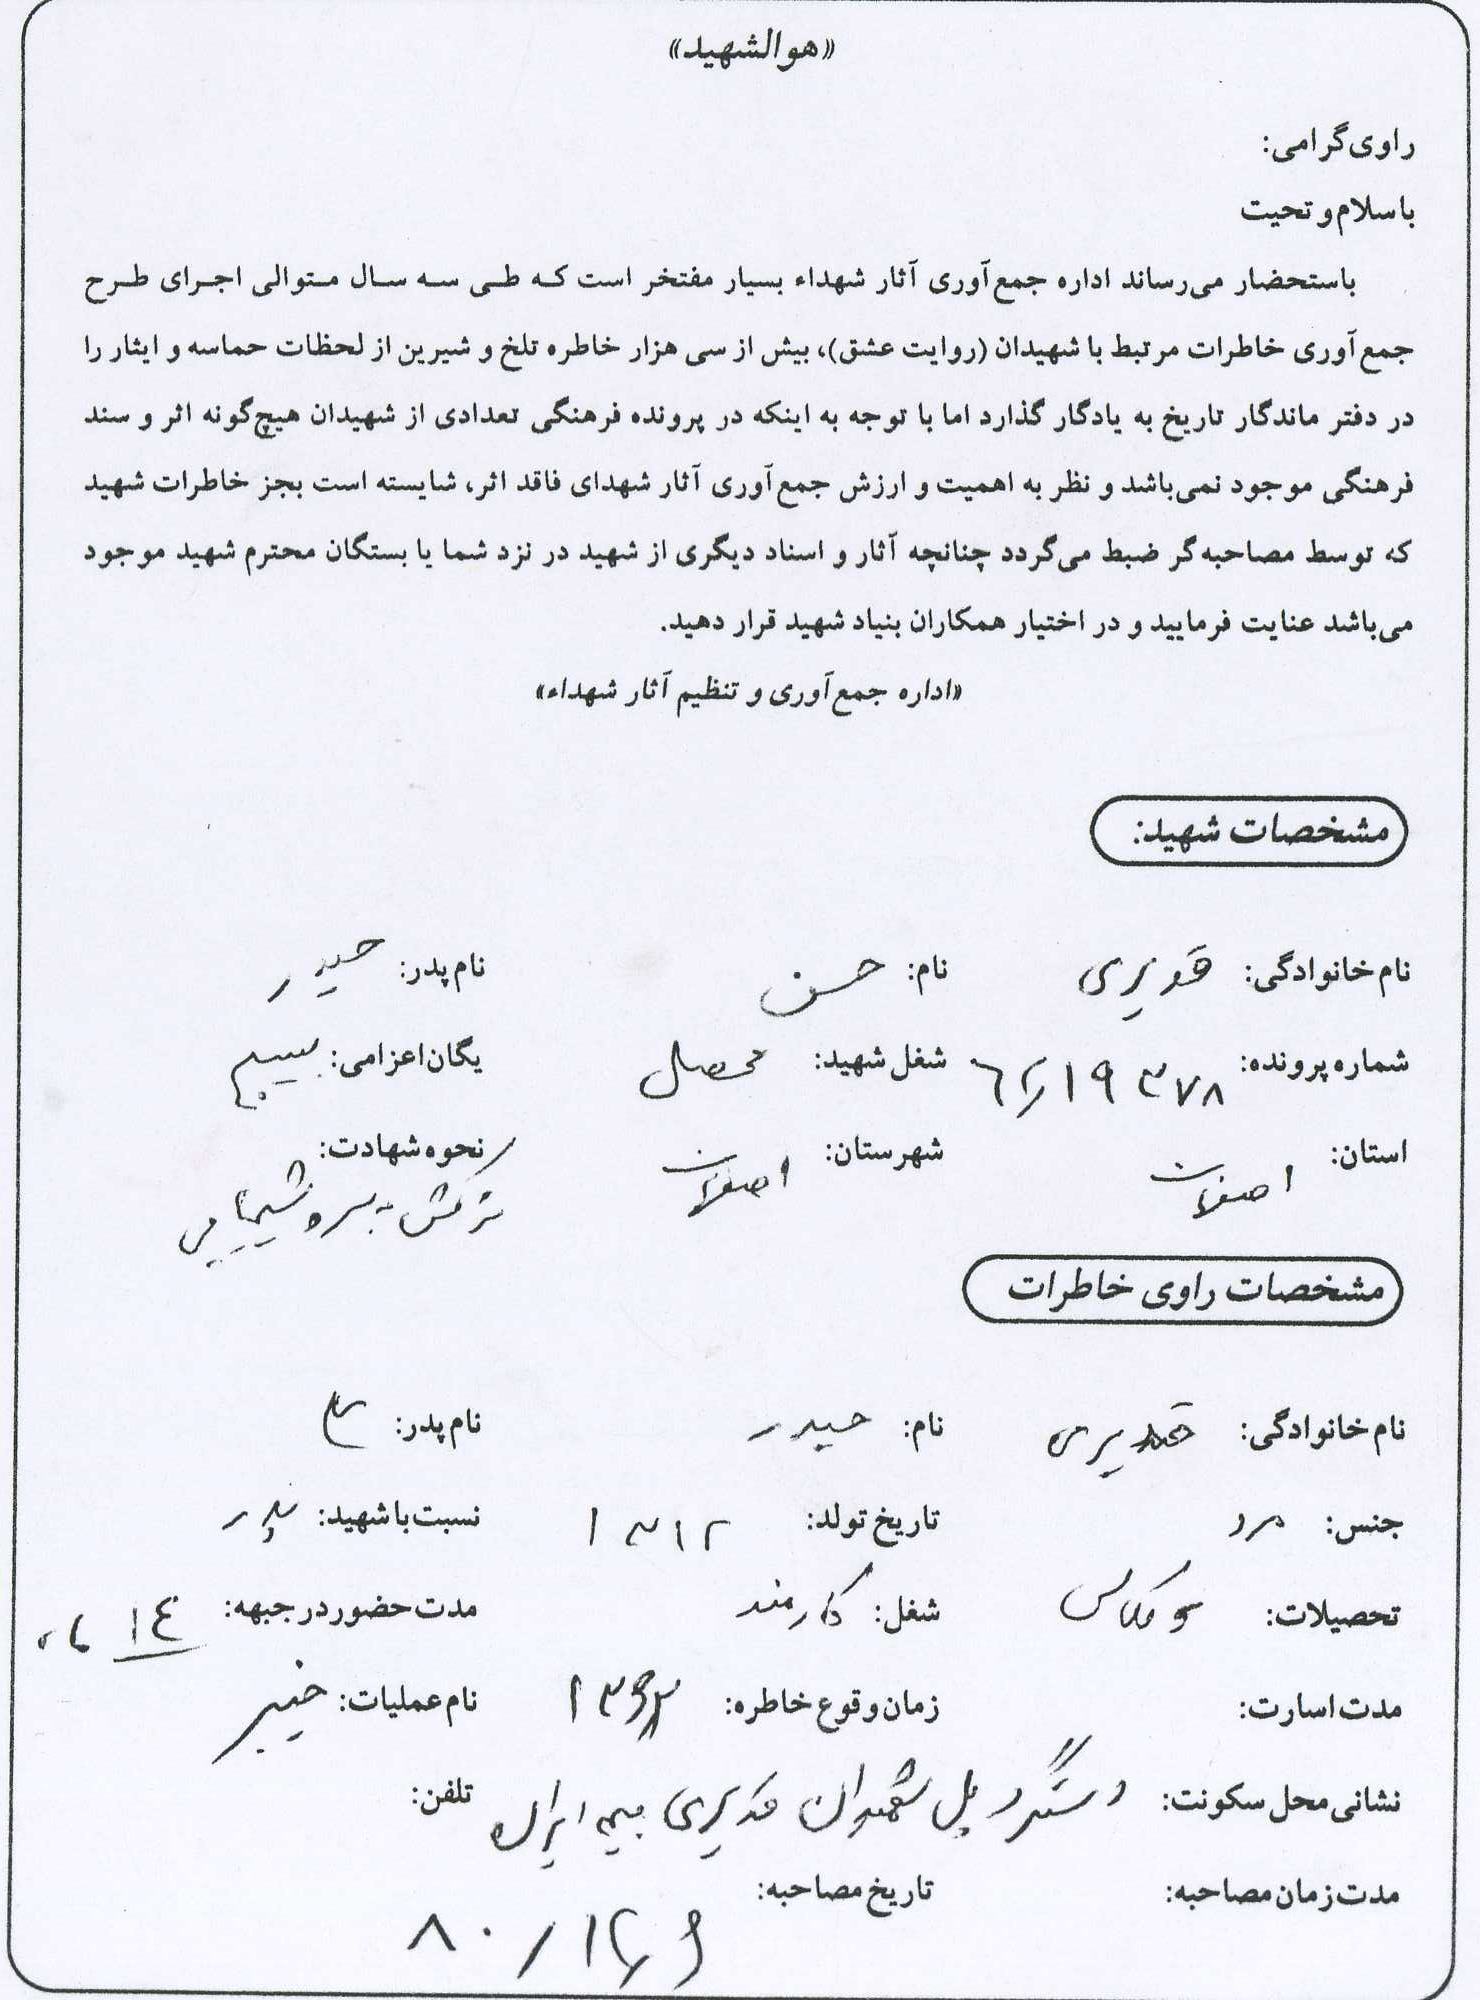 «هوالشهید»
راوی گرامی:
باسلام و تحیت
باستحضار می‌رساند اداره جمع‌آوری آثار شهداء بسیار مفتخر است که طی سه سال متوالی اجرای طرح
جمع‌آوری خاطرات مرتبط با شهیدان (روایت عشق)، بیش از سی هزار خاطره تلخ و شیرین از لحظات حماسه و ایثار را
در دفتر ماندگار تاریخ به یادگار گذارد اما با توجه به اینکه در پرونده فرهنگی تعدادی از شهیدان هیچ‌گونه اثر و سند
فرهنگی موجود نمی‌باشد و نظر به اهمیت و ارزش جمع‌آوری آثار شهدای فاقد اثر، شایسته است بجز خاطرات شهید
که توسط مصاحبه‌گر ضبط می‌گردد چنانچه آثار و اسناد دیگری از شهید در نزد شما یا بستگان محترم شهید موجود
می‌باشد عنایت فرمایید و در اختیار همکاران بنیاد شهید قرار دهید.
«اداره جمع‌آوری و تنظیم آثار شهداء»
مشخصات شهید:
نام خانوادگی: قدیری نام: حسن نام پدر: حیدر
شماره پرونده: شغل شهید: محصل یگان اعزامی: بسیج
استان: اصفهان شهرستان: اصفهان نحوه شهادت:
ترکش به سر و شیمیایی
مشخصات راوی خاطرات
نام خانوادگی: قدیری نام: حیدر نام پدر:
جنس: مرد تاریخ تولد: ۱۳۱۲ نسبت با شهید: پدر
تحصیلات: شغل: کارمند مدت حضور در جبهه: ۱۴ ماه
مدت اسارت: زمان وقوع خاطره: نام عملیات: خیبر
نشانی محل سکونت: دستگرد پل شهیدان قدیری بیمه ایران تلفن:
مدت زمان مصاحبه: تاریخ مصاحبه: